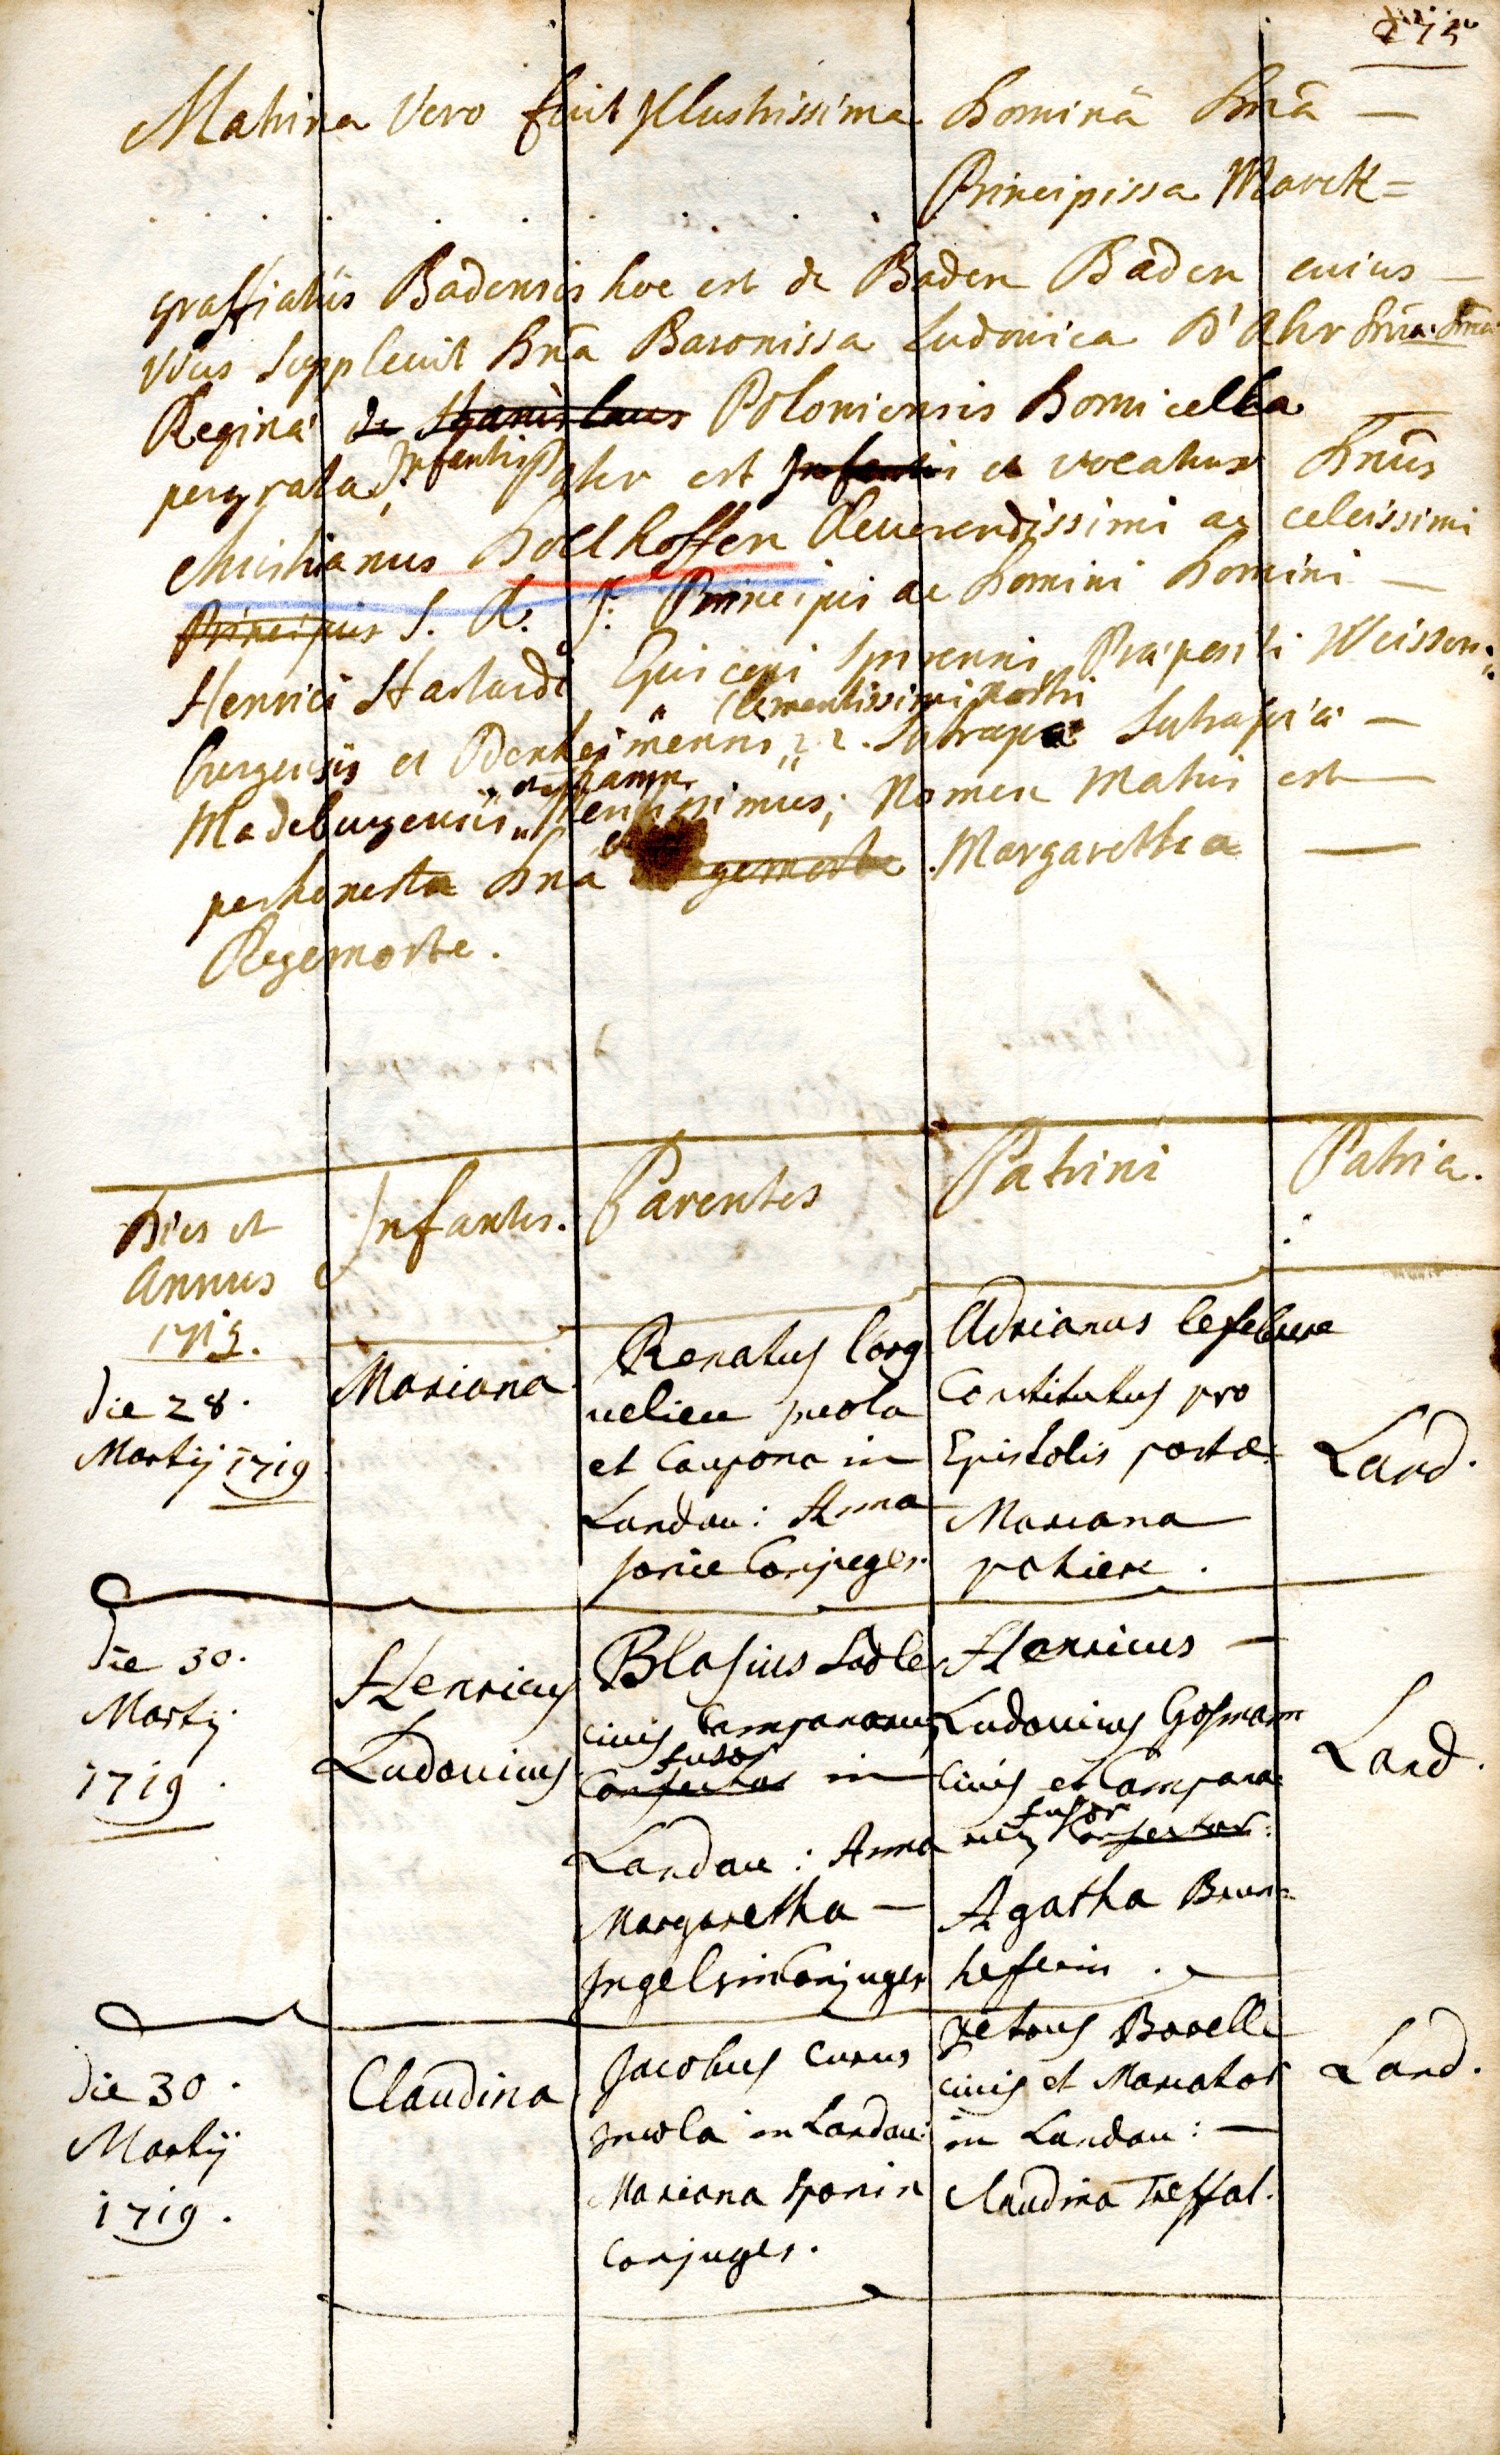 275
Matrina Vero fuit Illustrissima Dominā Dnā —
Principissa Marck=
graffiatus Badensis hoc est de Baden Baden cuius —
vices supplevit Dnā Baronissa Ludovica D'Ahr Dnā Dnā
Regina de Stanislaus Poloniensis Domicella
pergrata, Infantis Pater est Infantis et vocatur Dnūs
Christianus Dollhoffen Reverendissimi ac celcissimi
Principis S. R. J. Principis ac Domini Domini —
Henrici Hartardi Episcopi Spirensis Præpositi Weissen=
clementissimi Nostri
burgensis et Odenheimensis Satrapa Satrapia —
Madeburgensis Nomen Matris est —
perhonesta Dna gemorte Margaretha —
Regemorte.
Dies et
Annus
1719.
Infantes.
Parentes
Patrini
Patria.
die 28.
Martij 1719
Mariana
Renatus Corg
uelieu incola
et Caupona in
Landau: Anna
Conjuges.
Adrianus lefebure
Constitutus pro
Epistolis porta
Mariana
pohiere.
Land.
die 30.
Martij
1719.
Henricus
Ludovicus
Blasius Sadler
civis Campanarum
fusor
Confector in
Landau: Anna
Margaretha —
Ingelsin Conjuges
Henricus —
Ludovicus Gosmann
Civis et Campana=
fusor
rum Confector:
Agatha Brun=
heferin.
Land.
die 30.
Martij
1719.
Claudina
Jacobus Cunus
Incola in Landau:
Mariana Sponin
Conjuges.
Petrus Borelle
civis et Mercator
in Landau: —
Claudina Treffal.
Land.